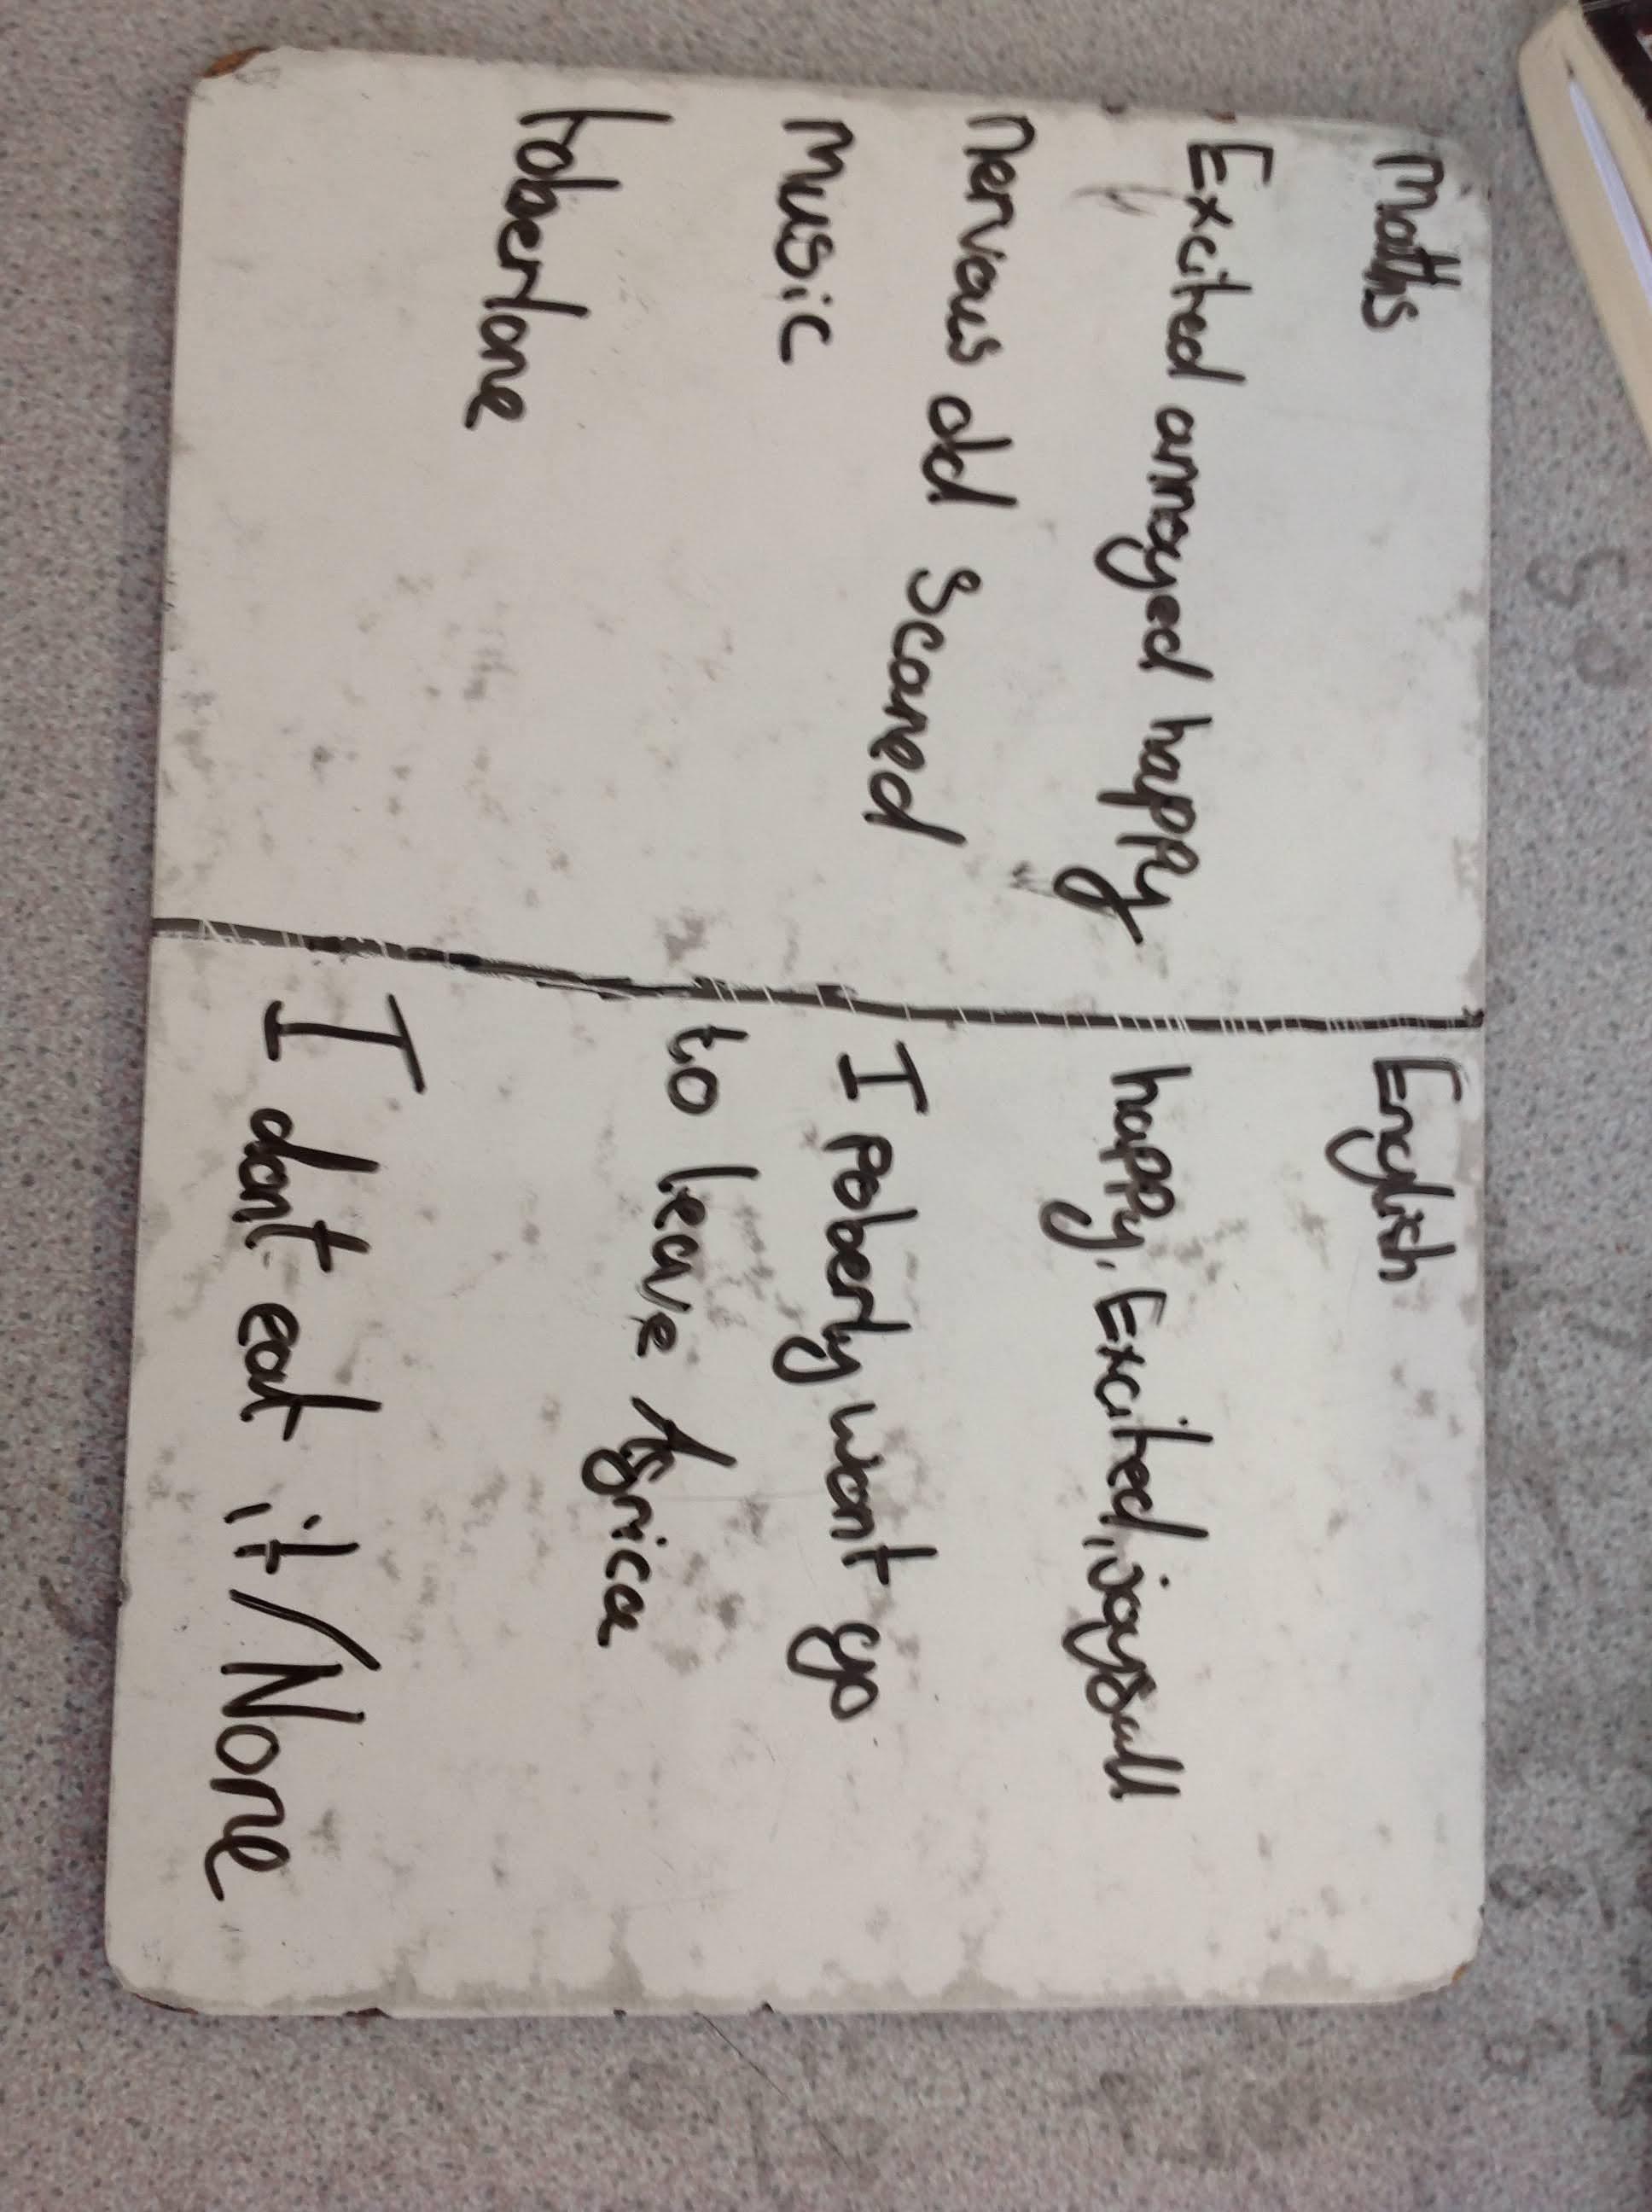 maths
Excited annoyed happy
nervous dd Scared
music
toberlone
English
happy, Excited, joyfull
I poberly wont go
to leave Africa
I dont eat it/None